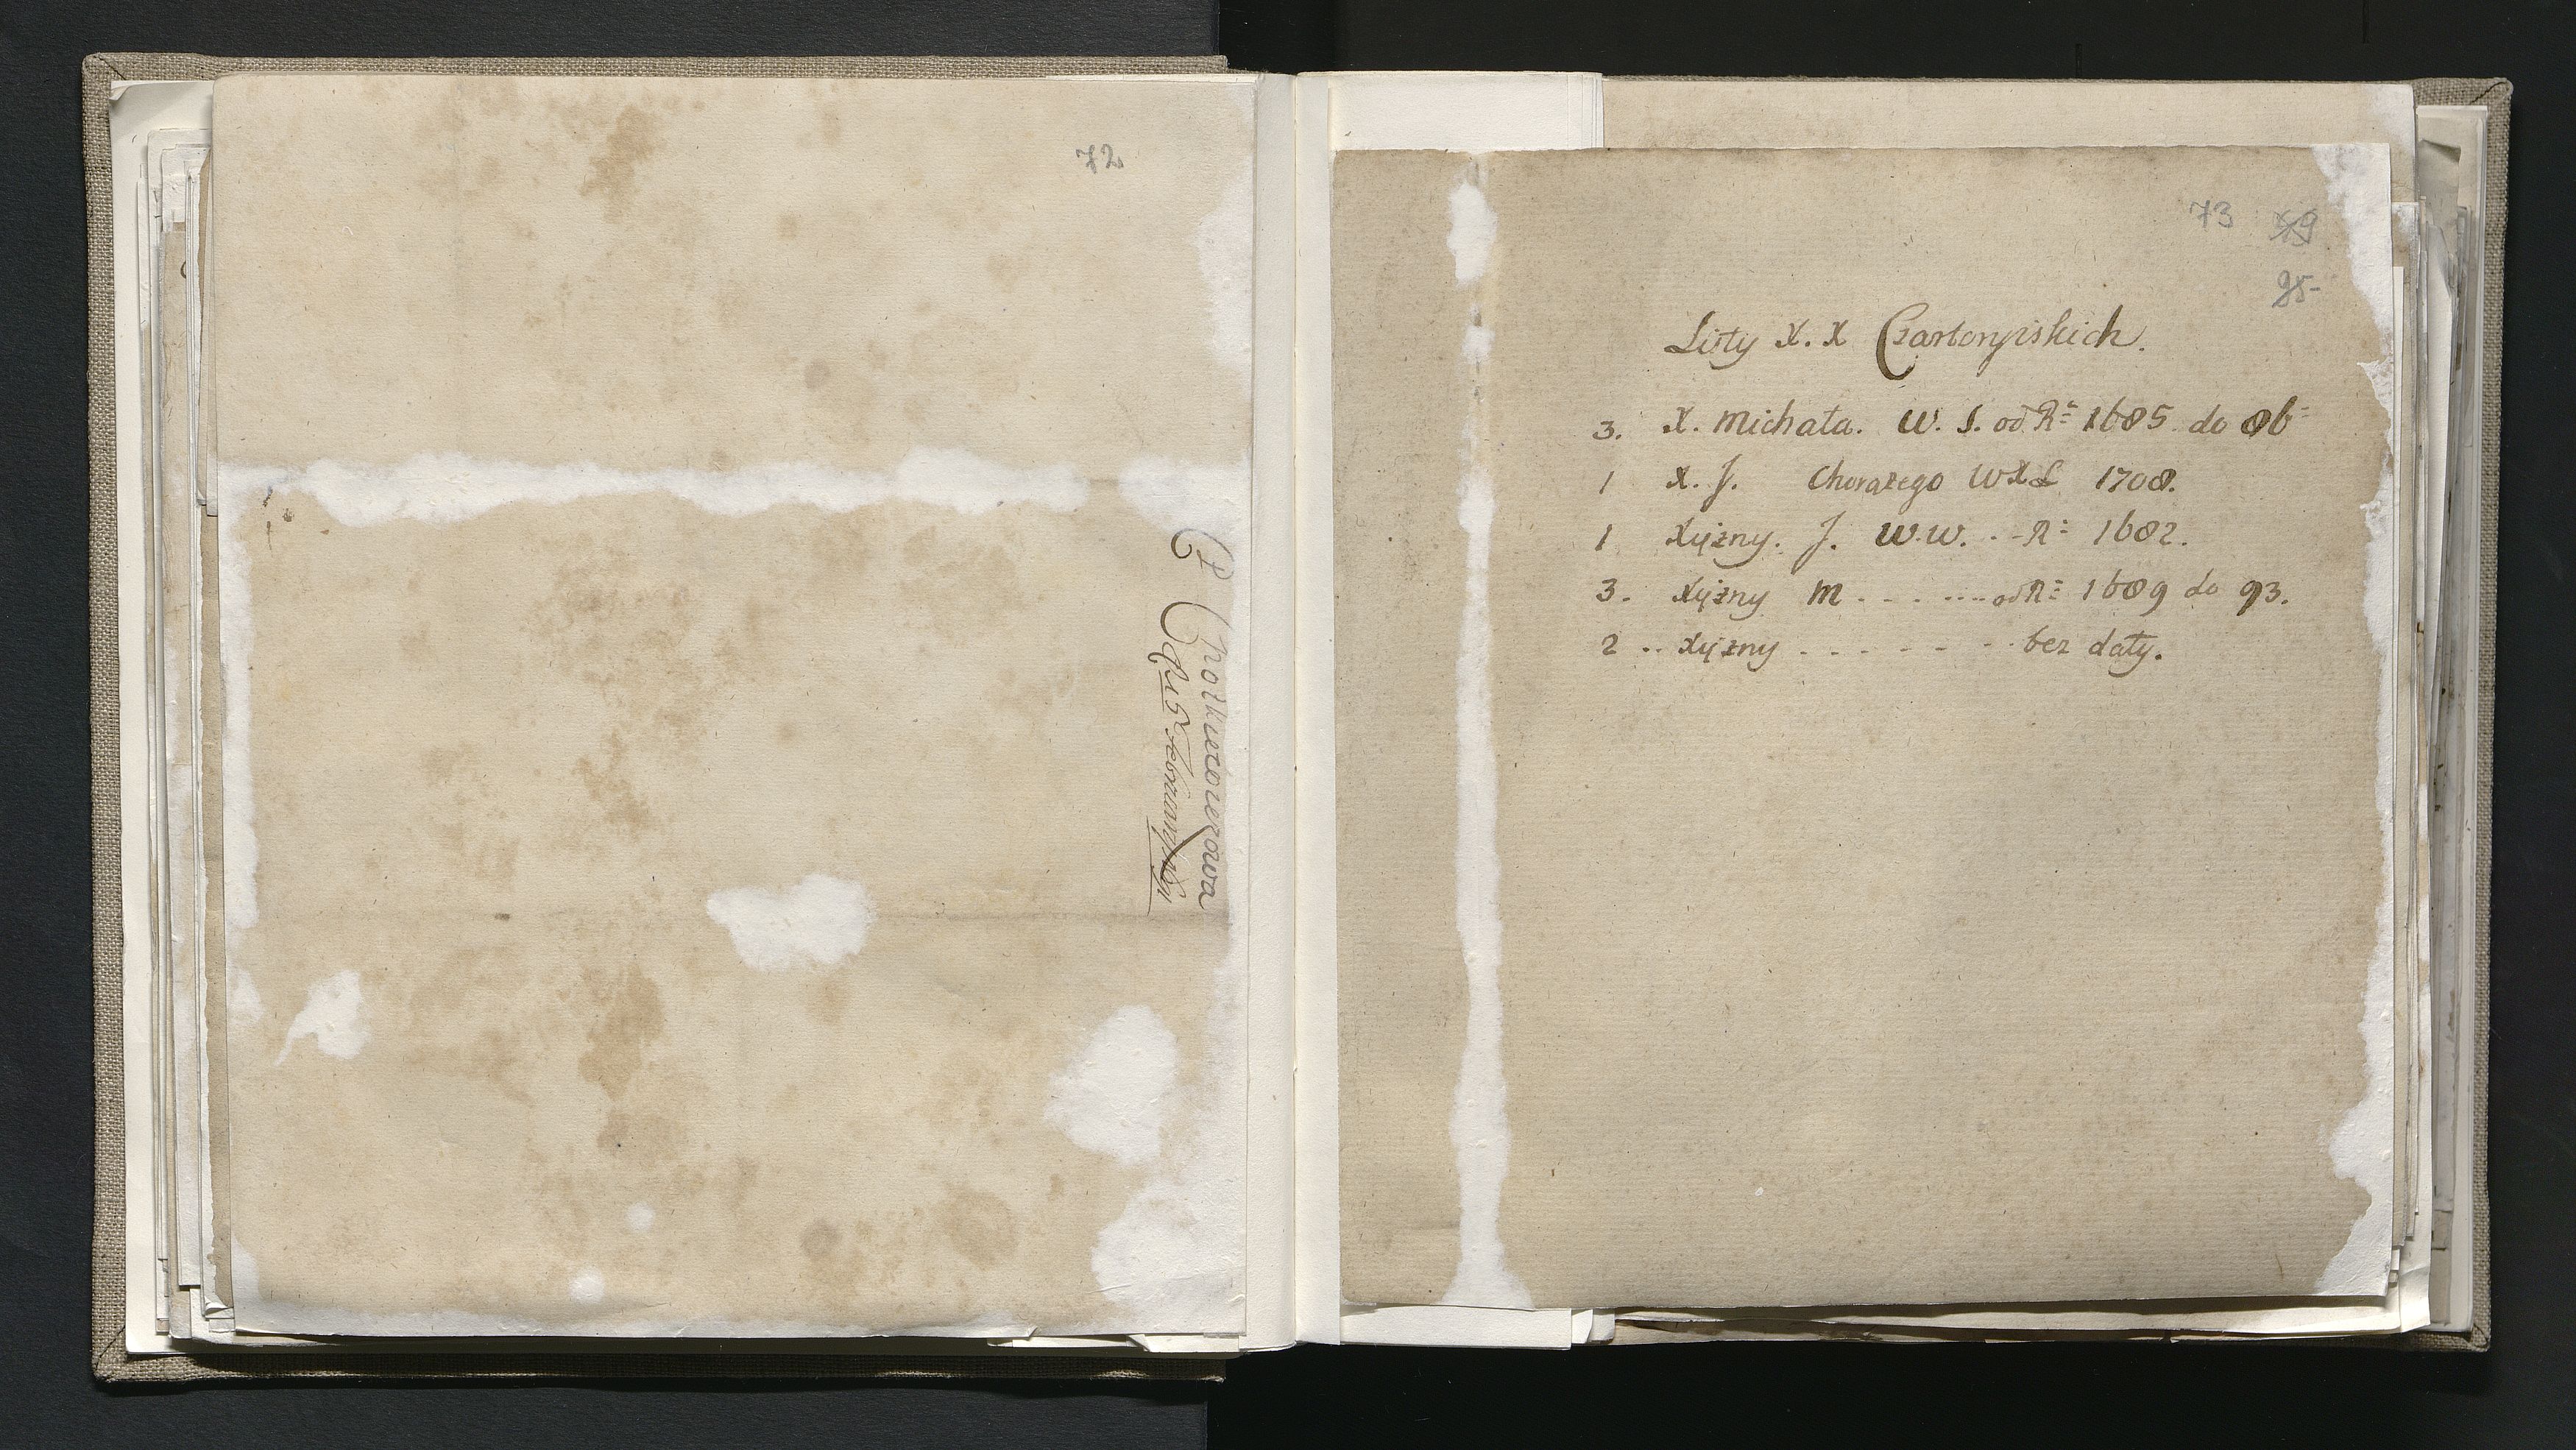 72
P Chotkiewiczowa
73 49
95
Listy X. X Czartoryiskich.
3. X. Michała. W. S. od R= 1685. do 86=
1 X. J. Chorążego WXL 1708.
1 Xiężny. J. W.W. . - R= 1682.
3. Xiężny M . - - ..... od R= 1689 do 93.
2 .. Xiężny - - - - - - bez daty.